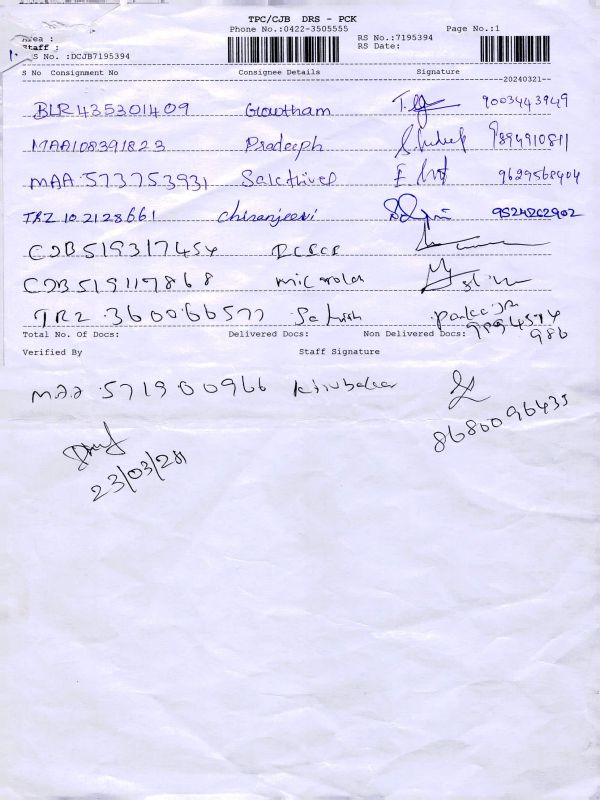 TPC/CJB DRS - PCK
Phone No.:0422-3505555 Page No.:1
Area :
Staff : RS No.:7195394
S No. :DCJB7195394 RS Date:
S No Consignment No Consignee Details Signature
20240321
BLR435301409 Gowtham 9003443949
MAA108391823 Pradeeph 9894910811
MAA.573753931 9629568404
TRZ 102128661 Chiranjeevi 9524202902
CDB519317454
CDB519117868
TRZ.360066577 Satish
Total No. Of Docs: Delivered Docs: Non Delivered Docs: 9894574
986
Verified By Staff Signature
MAA.571900966 8680096435
23/03/24